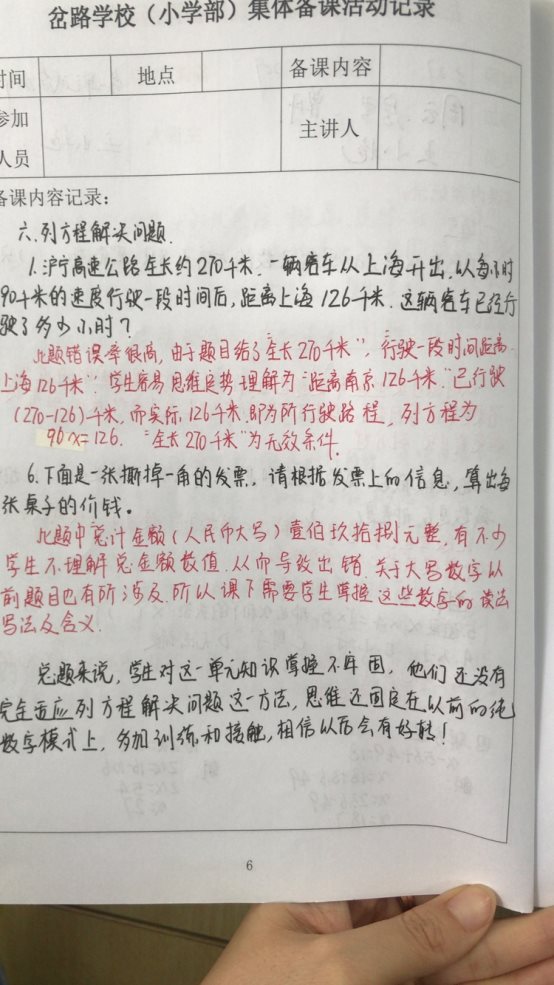 岔路学校（小学部）集体备课活动记录
时间 地点 备课内容
参加人员 主讲人
备课内容记录：
六.列方程解决问题.
1.沪宁高速公路全长约270千米.一辆客车从上海开出.以每小时
90千米的速度行驶一段时间后,距离上海126千米.这辆客车已经行
驶了多少小时?
此题错误率很高,由于题目给了"全长270千米",行驶一段时间距离
上海126千米".学生容易思维定势理解为"距离南京126千米."已行驶
(270-126)千米,而实际,126千米.即为所行驶路程,列方程为
90x=126. "全长270千米"为无效条件.
6.下面是一张撕掉一角的发票,请根据发票上的信息,算出每
张桌子的价钱。
此题中总计金额(人民币大写)壹佰玖拾捌元整,有不少
学生不理解总金额数值.从而导致出错.关于大写数字以
前题目也有所涉及.所以课下需要学生掌握这些数字的读法
写法及含义.
总题来说,学生对这一单元知识掌握不牢固,他们还没有
完全适应列方程解决问题这一方法,思维还固定在以前的纯
数字模式上,多加训练和接触,相信以后会有好转!
6